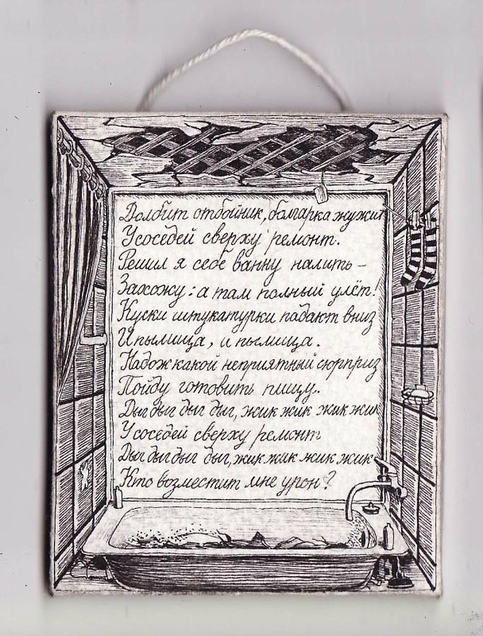 Долбит отбойник, болгарка жужит
У соседей сверху ремонт.
Решил я себе ванну налить –
Захожу: а там полный улёт!
Куски штукатурки падают вниз
И пылища, и пылища.
Надож какой неприятный сюрприз
Пойду готовить пищу.
Дыг дыг дыг дыг, жик жик жик жик
У соседей сверху ремонт
Дыг дыг дыг дыг, жик жик жик жик
Кто возместит мне урон?